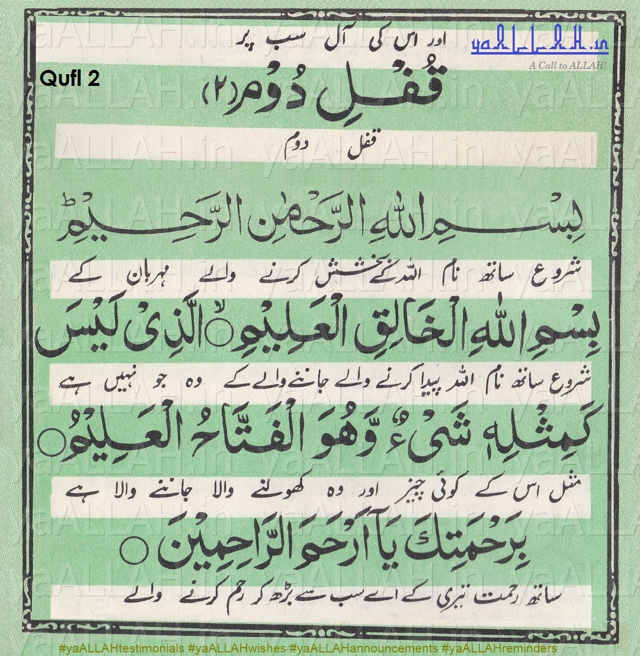 اور اس کی آل سب پر
yaALLAH.in
A Call to ALLAH!
Qufl 2
قُفْلِ دُوْم (۲)
قفل دوم
بِسْمِ اللهِ الرَّحْمٰنِ الرَّحِيْمِ ط
شروع ساتھ نام اللہ کے بخشش کرنے والے مہربان کے
بِسْمِ اللهِ الْخَالِقِ الْعَلِيْمِ ۙ○ الَّذِىْ لَيْسَ
شروع ساتھ نام اللہ پیدا کرنے والے جاننے والے کے وہ جو نہیں ہے
كَمِثْلِهٖ شَىْءٌ وَّهُوَ الْفَتَّاحُ الْعَلِيْمُ ○
مثل اس کے کوئی چیز اور وہ کھولنے والا جاننے والا ہے
بِرَحْمَتِكَ يَآ اَرْحَمَ الرَّاحِمِيْنَ ○
ساتھ رحمت تیری کے اے سب سے بڑھ کر رحم کرنے والے
#yaALLAHtestimonials #yaALLAHwishes #yaALLAHannouncements #yaALLAHreminders